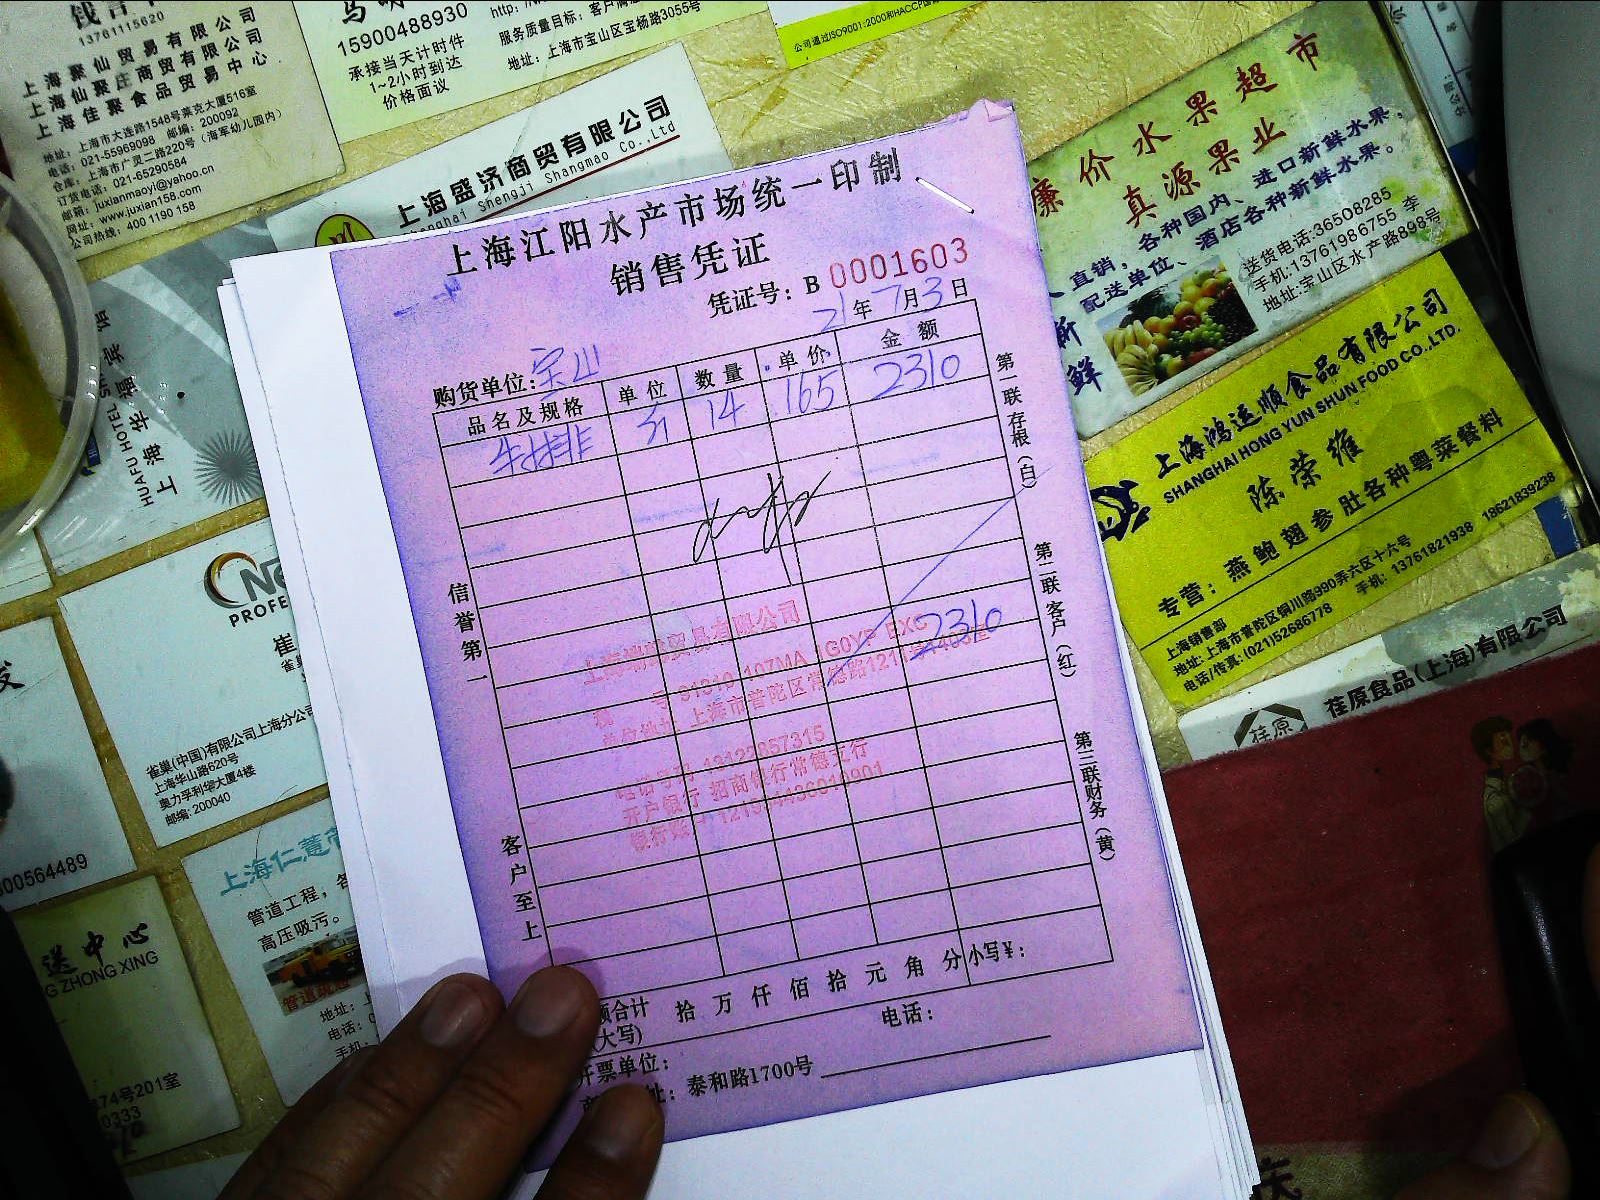 13761115620
上海聚仙贸易有限公司
上海仙聚庄商贸有限公司
上海佳聚食品贸易中心
地址：上海市大连路1546号莱克大厦516室
电话：021-55969098 邮编：200092
仓库：上海市广灵二路220号（海军幼儿园内）
订货电话：021-65290584
邮箱：juxianmaoyi@yahoo.cn
网址：www.juxian158.com
公司热线：400 1190 158
15900488930
承接当天计时件
1~2小时到达
价格面议
服务质量目标：客户满
地址：上海市宝山区宝杨路3055号
公司通过ISO9001:2000和HACCP
上海盛济商贸有限公司
Shanghai Shengji Shangmao Co.,Ltd
廉价水果超市
真源果业
直销，各种国内、进口新鲜水果。
配送单位、酒店各种新鲜水果。
新鲜
送货电话:36508285
手机:13761986755 李
地址:宝山区水产路898号
上海鸿运顺食品有限公司
SHANGHAI HONG YUN SHUN FOOD CO.,LTD.
陈荣维
专营：燕鲍翅参肚各种粤菜餐料
上海销售部
地址:上海市普陀区铜川路990弄六区十六号
电话/传真:(021)52686778 手机: 13761821938 18621839238
荏原
荏原食品(上海)有限公司
上海江阳水产市场统一印制
销售凭证
凭证号：B 0001603
21年7月3日
购货单位：宝山
品名及规格 单位 数量 单价 金额
牛排 14 165 2310
2310
信誉第一
客户至上
第一联存根(白)
第二联客户(红)
第三联财务(黄)
贸易有限公司
上海市普陀区常德路1211
13122857315
开户银行 招商银行常德支行
额合计 拾万仟佰拾元角分 小写¥：
(大写)
开票单位： 电话：
址：泰和路1700号
HUAFU HOTEL
上海华福宾馆
PROFE
崔
雀巢(中国)有限公司上海分公司
上海华山路620号
奥力孚利华大厦4楼
邮编: 200040
00564489
上海仁慧
管道工程，各
高压吸污。
管道疏通
地址：
电话：
手机：
送中心
ZHONG XING
74号201室
0333